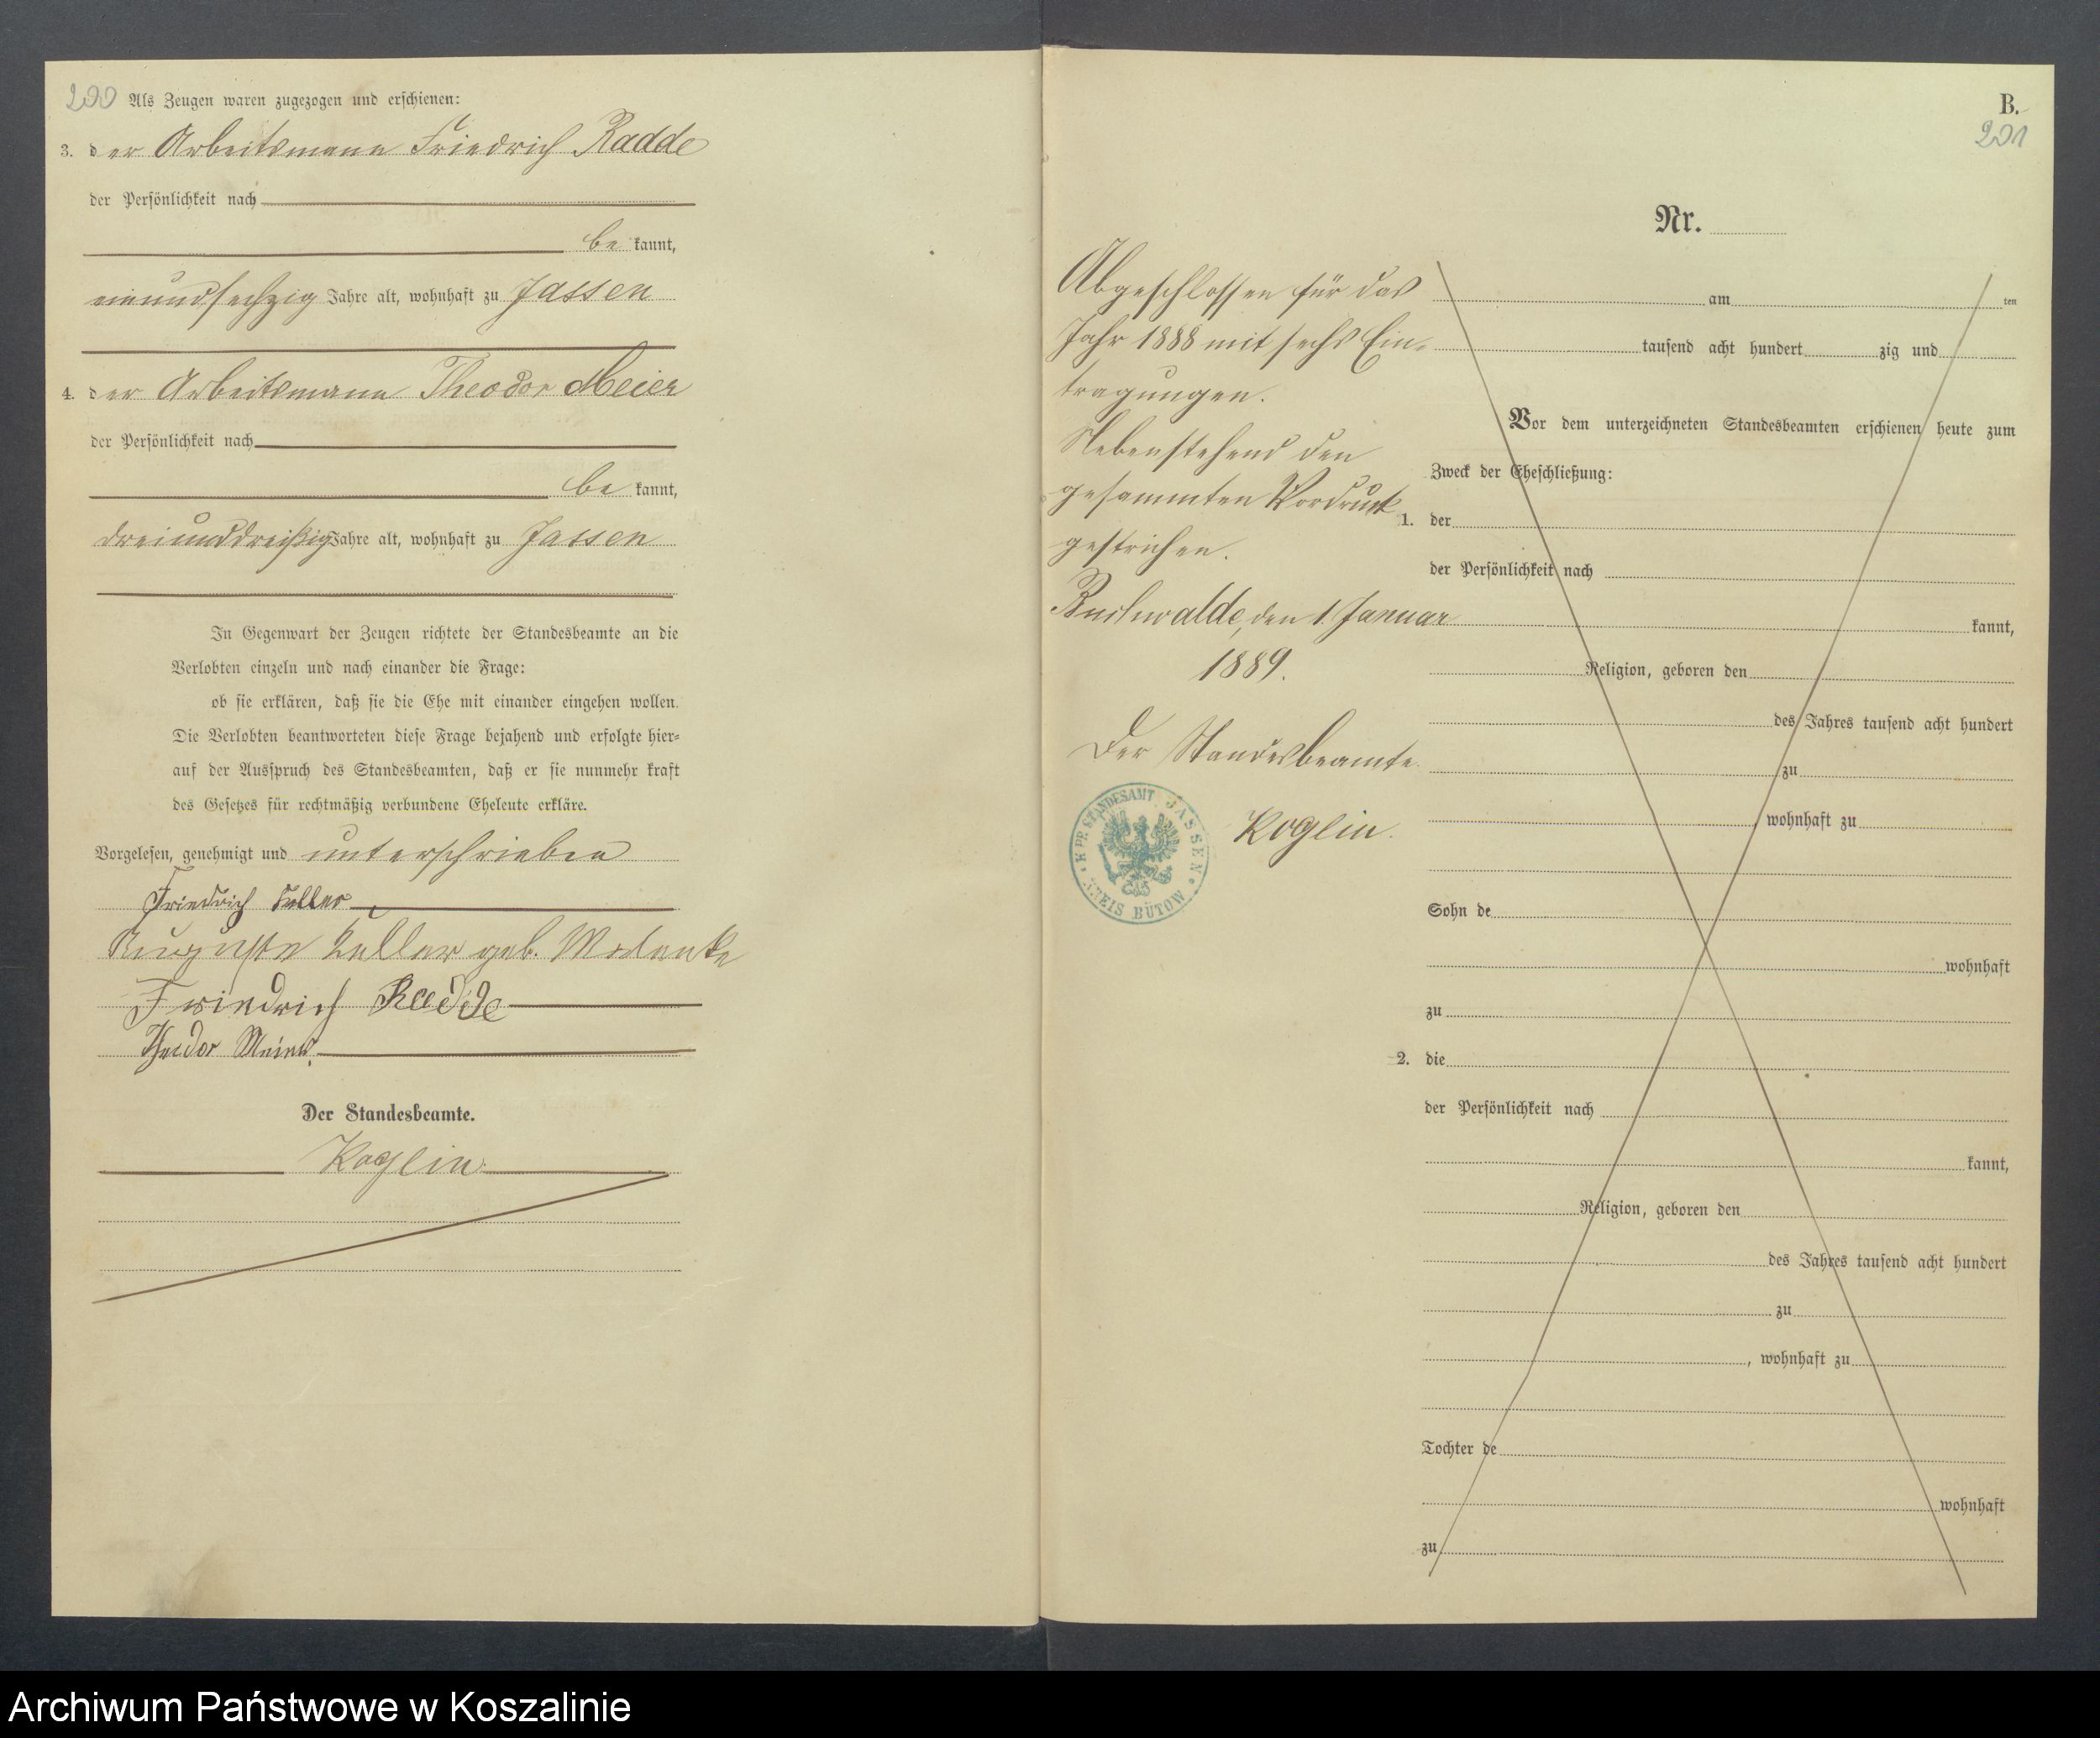 200 Als Zeugen waren zugezogen und erschienen:
3. der Arbeitsmann Friedrich Radde
der Persönlichkeit nach
be kannt,
einundsechzig Jahre alt, wohnhaft zu Jassen
4. der Arbeitsmann Theodor Meier
der Persönlichkeit nach
be kannt,
dreiunddreißig Jahre alt, wohnhaft zu Jassen
In Gegenwart der Zeugen richtete der Standesbeamte an die
Verlobten einzeln und nach einander die Frage:
ob sie erklären, daß sie die Ehe mit einander eingehen wollen.
Die Verlobten beantworteten diese Frage bejahend und erfolgte hier=
auf der Ausspruch des Standesbeamten, daß er sie nunmehr kraft
des Gesetzes für rechtmäßig verbundene Eheleute erkläre.
Vorgelesen, genehmigt und unterschrieben
Friedrich Keller
Auguste Keller geb.
Friedrich Radde
Theodor Meier.
Der Standesbeamte.
Koglin.
B.
201
Nr.
Abgeschlossen für das
Jahr 1888 mit sechs Ein-
tragungen.
Nebenstehend den
gesammten Vordruck
gestrichen.
Buchwalde, den 1. Januar
1889.
Der Standesbeamte.
Koglin.
K. PR. STANDESAMT JASSEN
KREIS BÜTOW
am ten
tausend acht hundert zig und
Vor dem unterzeichneten Standesbeamten erschienen heute zum
Zweck der Eheschließung:
1. der
der Persönlichkeit nach
kannt,
Religion, geboren den
des Jahres tausend acht hundert
zu
, wohnhaft zu
Sohn de
wohnhaft
zu
2. die
der Persönlichkeit nach
kannt,
Religion, geboren den
des Jahres tausend acht hundert
zu
, wohnhaft zu
Tochter de
wohnhaft
zu
Archiwum Państwowe w Koszalinie